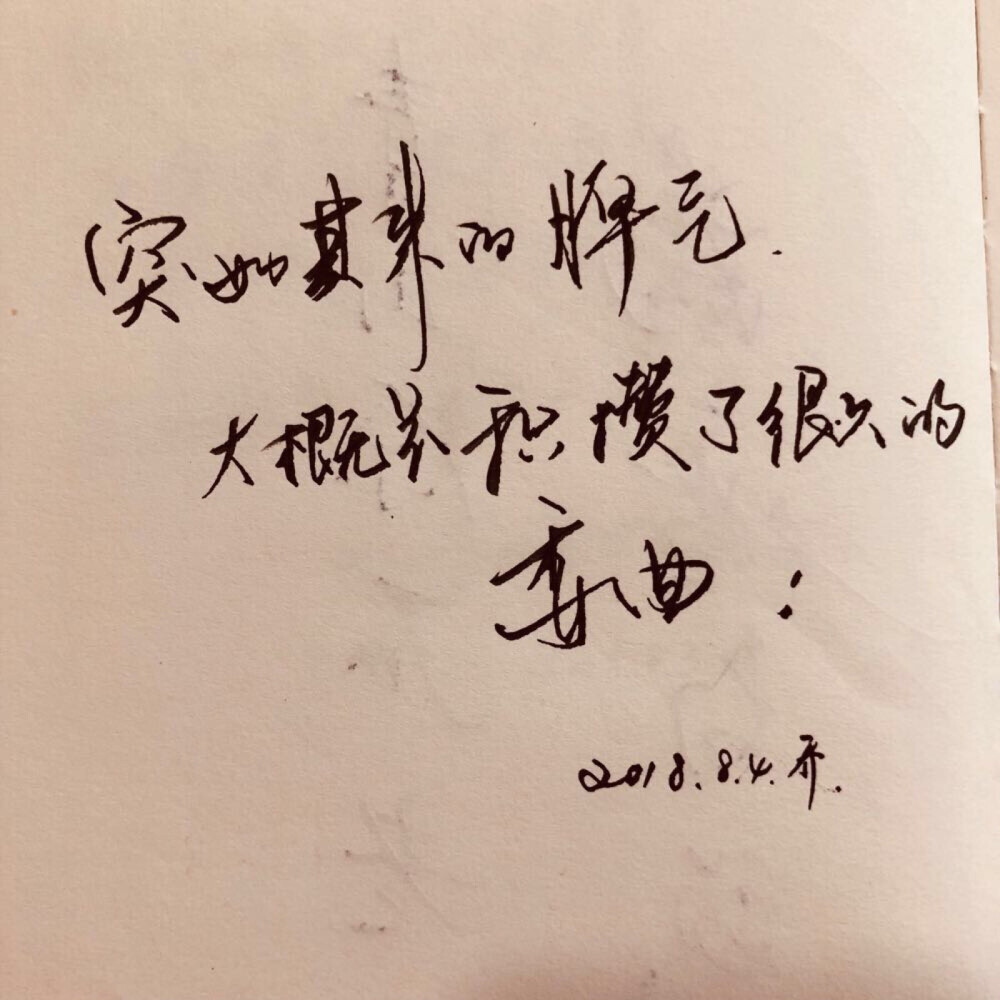 突如其来的脾气.
大概是积攒了很久的
委曲!
2018.8.4.乔.